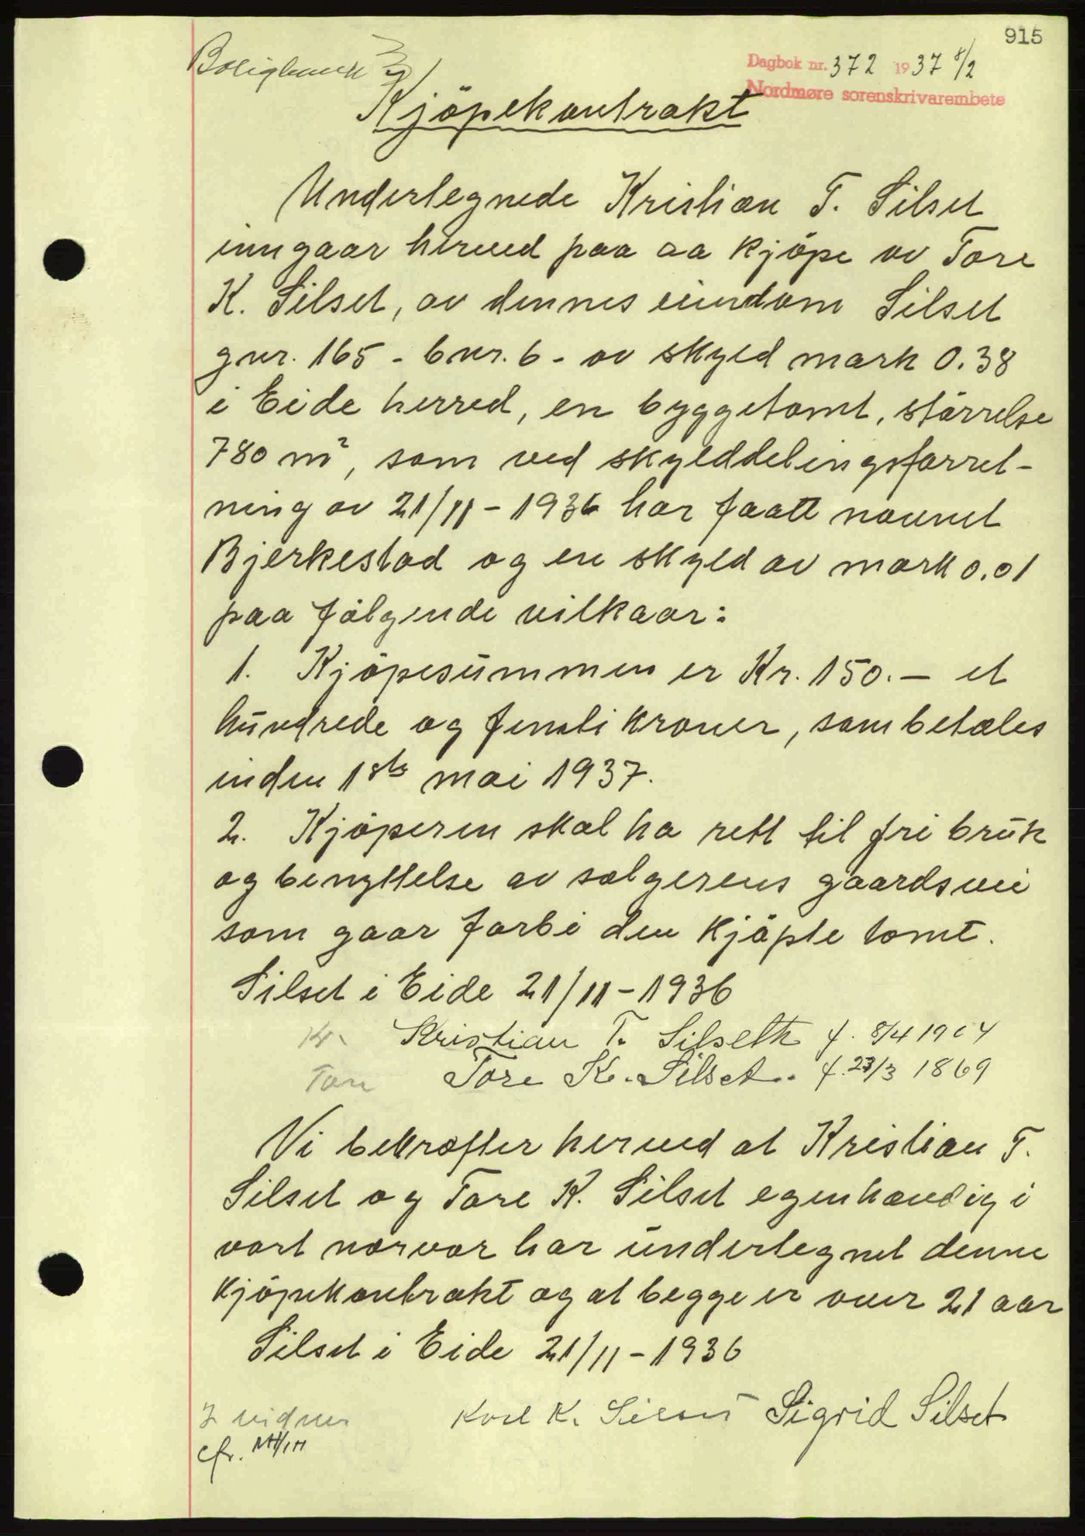 915
Dagbok nr. 372 1937 8/2
Nordmøre sorenskrivarembete
Kjöpekontrakt
Undertegnede Kristian T. Silset
inngaar herved paa aa kjöpe av Tore
K. Silset, av dennes eiendom Silset
gnr. 165 - bnr. 6 - av skyld mark 0.38
i Eide herred, en byggetomt, störrelse
780 m², som ved skylddelingsforret-
ning av 21/11 - 1936 har faatt navnet
Bjerkestad og en skyld av mark 0.01
paa fölgende vilkaar:
1. Kjöpesummen er Kr. 150.— et
hundrede og femti kroner, som betales
inden 1ste mai 1937.
2. Kjöperen skal ha rett til fri bruk
og benyttelse av sælgerens gaardsvei
som gaar forbi den kjöpte tomt.
Silset i Eide 21/11 - 1936
Kr. Kristian T. Silseth f. 8/4 1904
Tore Tore K. Silset. f. 23/3 1869
Vi bekræfter herved at Kristian T.
Silset og Tore K. Silset egenhændig i
vort nærvær har undertegnet denne
kjöpekontrakt og at begge er over 21 aar
Silset i Eide 21/11 - 1936
2 vidner Karl K. Silset Sigrid Silset
cfr.